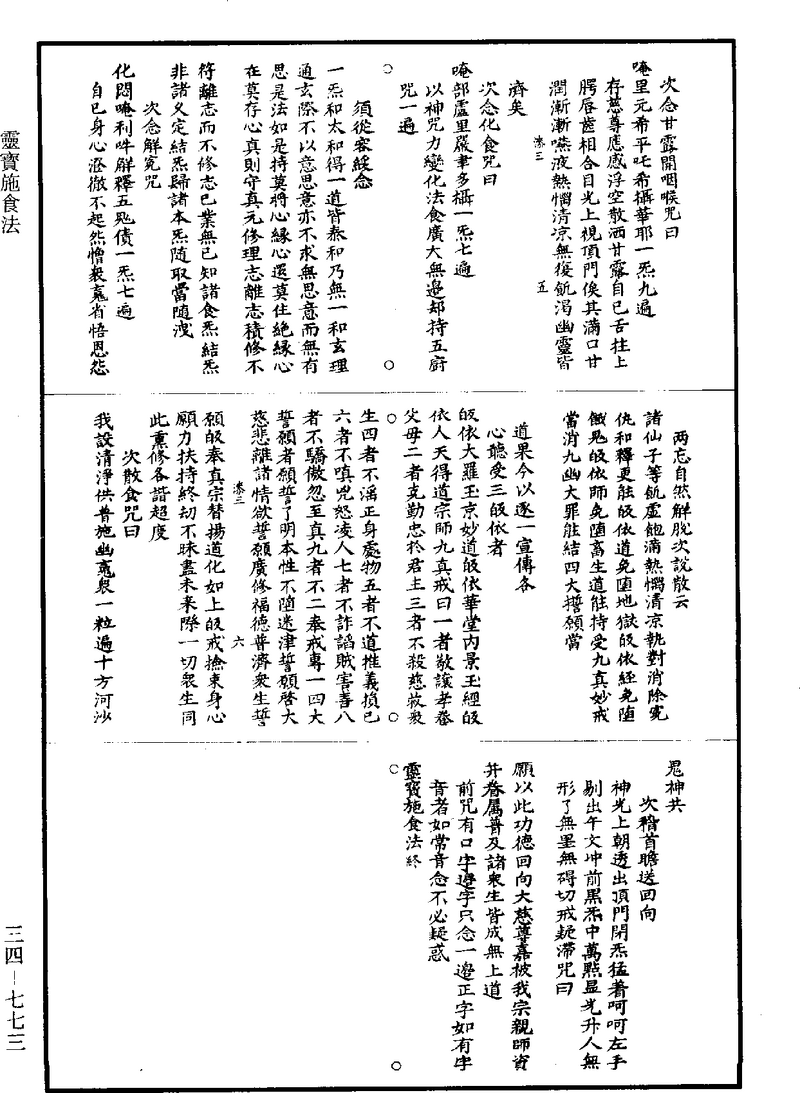 靈寶施食法
次念甘露開咽喉咒曰
唵里元希平吒希攝華耶一炁九遍
存慈尊應感浮空散洒甘露自己舌拄上
腭唇齒相合目光上視頂門俟其滿口甘
潤漸漸嚥液熱惱清凉無復飢渴幽靈皆
漆三
五
濟矣
次念化食咒曰
唵部盧里嚴聿多攝一炁七遍
以神咒力變化法食廣大無邊却持五廚
咒一遍
須從容緩念
一炁和太和得一道皆泰和乃無一和玄理
通玄際不以意思意亦不求無思意而無有
思是法如是持莫將心緣心還莫住絕緣心
在莫存心真則守真元修理志離志積修不
符離志而不修志己業無己知諸食炁結炁
非諸久定結炁歸諸本炁隨取當隨洩
次念解冤咒
化悶唵利吽解釋五兜債一炁七遍
自己身心澄徹不起怨憎衆䰟省悟恩怨
兩忘自然解脫次說散云
諸仙子等飢虛飽滿熱惱清凉執對消除冤
仇和釋更能皈依道免墮地獄皈依經免墮
餓鬼皈依師免墮畜生道能持受九真妙戒
當消九幽大罪能結四大誓願當
道果今以逐一宣傳各
心聽受三皈依者
皈依大羅玉京妙道皈依華堂內景玉經皈
依人天得道宗師九真戒曰一者敬讓孝養
父母二者克勤忠於君主三者不殺慈救衆
生四者不淫正身處物五者不道推義損己
六者不嗔咒怒凌人七者不詐諂賊害善八
者不驕傲忽至真九者不二奉戒專一四大
誓願者願誓了明本性不隨迷津誓願啓大
慈悲離諸情欲誓願廣修福德普濟衆生誓
漆三
六
願皈奉真宗替揚道化如上皈戒撿束身心
願力扶持終劫不昧盡未來際一切衆生同
此熏修各諧超度
次散食咒曰
我設清淨供普施幽䰟衆一粒遍十方河沙
鬼神共
次稽首瞻送回向
神光上朝透出頂門閉炁猛着呵呵左手
剔出午文冲前黑炁中萬點显光升人無
形了無罣無碍切戒疑滯咒曰
願以此功德回向大慈尊嘉被我宗親師資
并眷屬普及諸衆生皆成無上道
前咒有口字邊字只念一邊正字如有字
音者如常音念不必疑惑
靈寶施食法終
三四-七七三